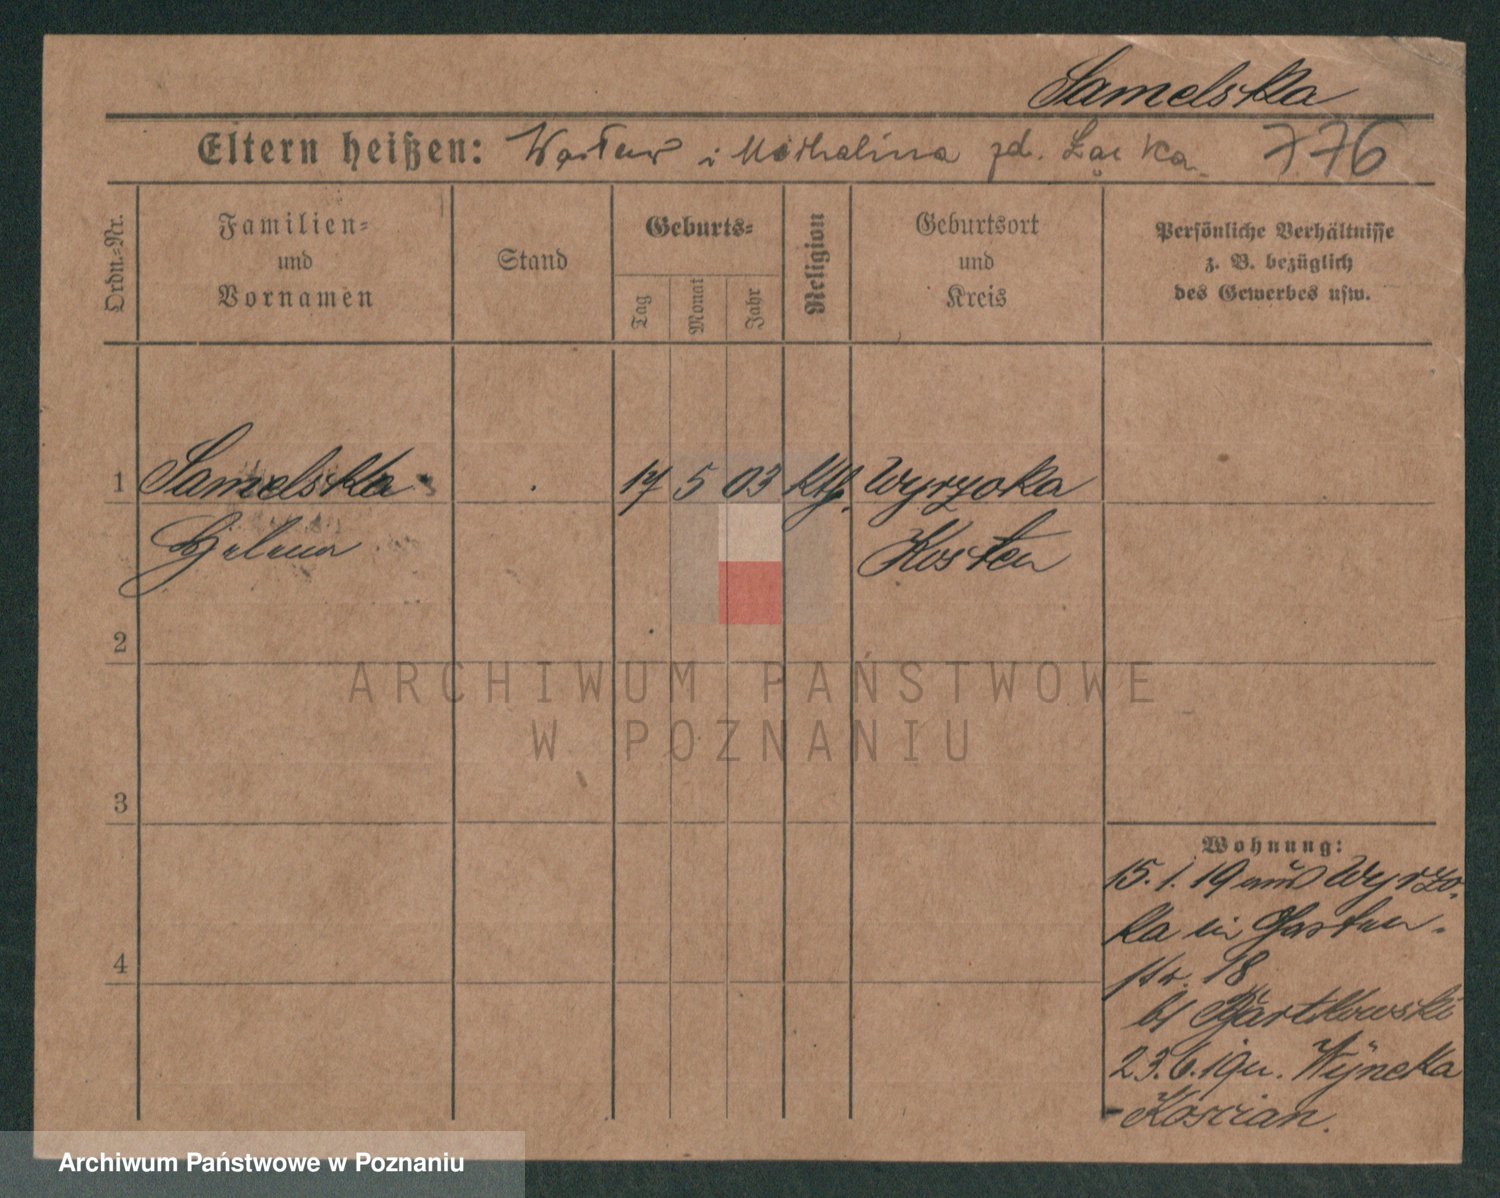 Samelska
Eltern heißen: Wacław i Michalina zd. Łącka 776
Ordn.=Nr.
Familien=
und
Vornamen
Stand
Geburts=
Tag
Monat
Jahr
Religion
Geburtsort
und
Kreis
Persönliche Verhältnisse
z. B. bezüglich
des Gewerbes usw.
1 Samelska 17 5 03 Kth. Wyrzoka
Helena Kosten
2
3
4
Wohnung:
15. 1. 19 aus Wyrzo-
ka in Garten-
str. 18
b/ Bartkowski
23. 6. 19 n.
Kościan.
ARCHIWUM PAŃSTWOWE
W POZNANIU
Archiwum Państwowe w Poznaniu